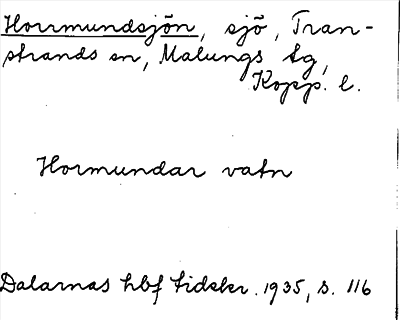 Horrmundsjön, sjö, Tran-
strands sn, Malungs tg,
Kopp. l.
Hormundar vatn
Dalarnas hbf tidskr. 1935, s. 116